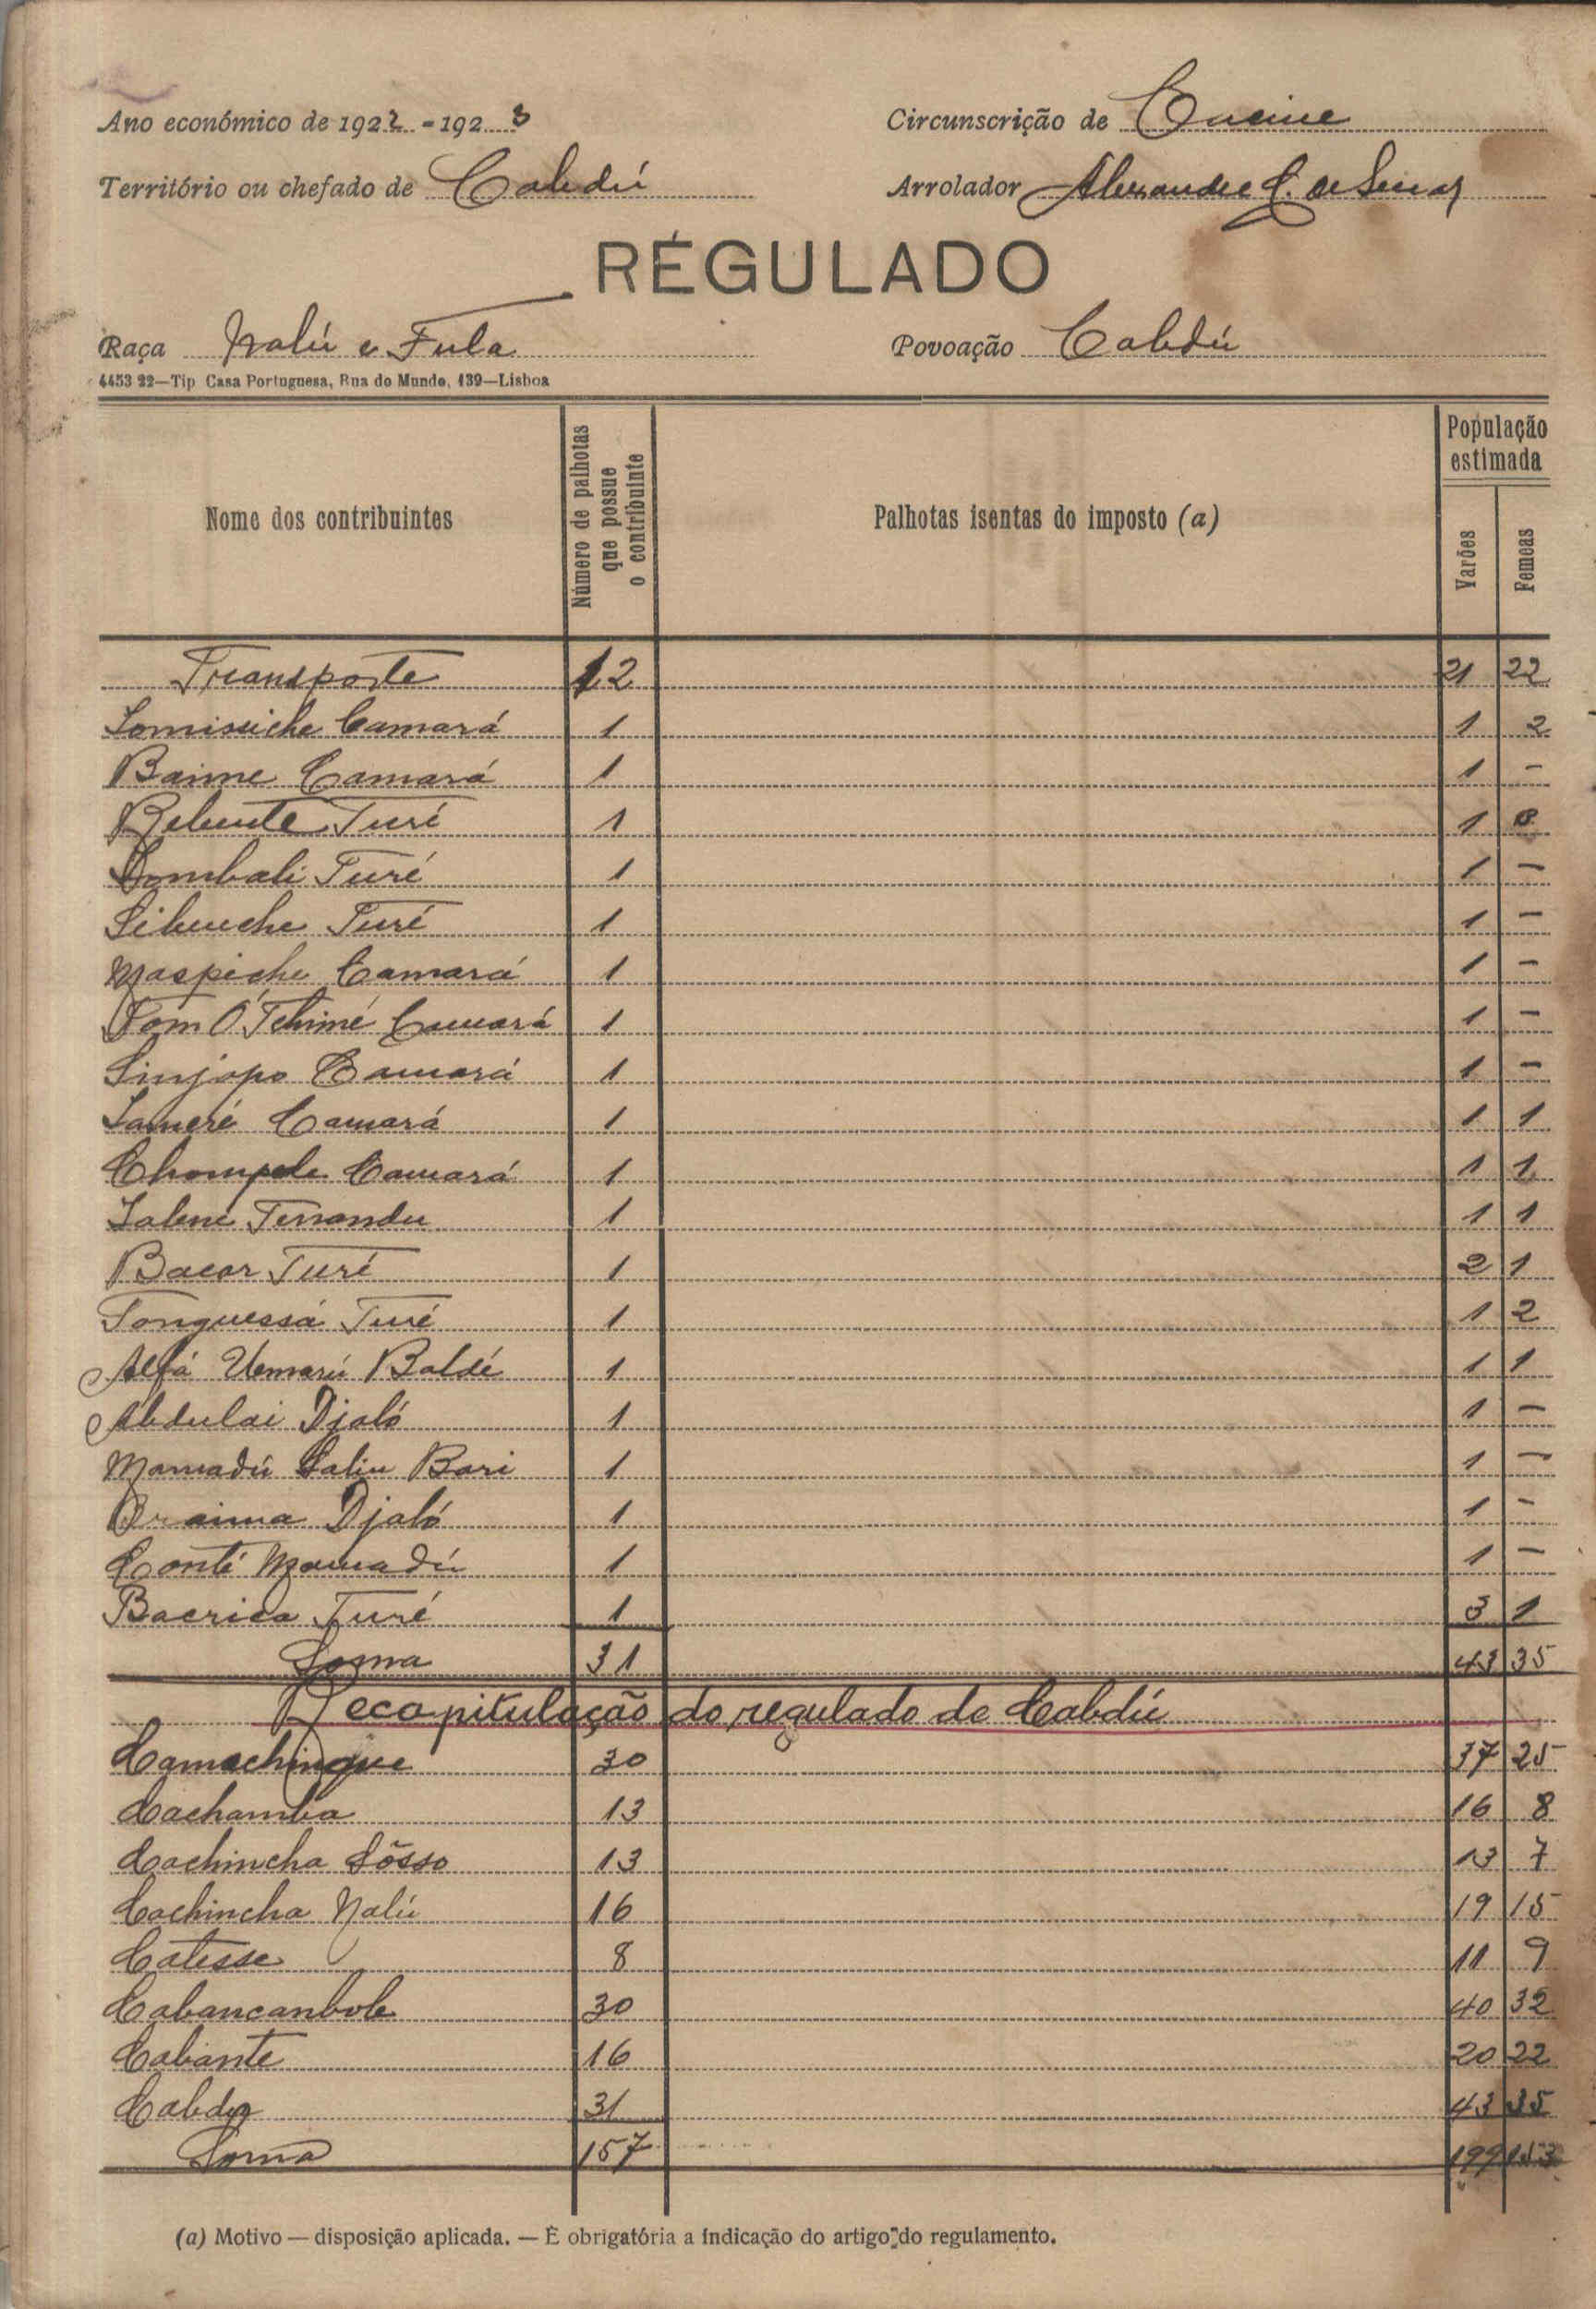 Ano económico de 1922 - 1923 Circunscrição de Cacine
Território ou chefado de Cabdú Arrolador Alexandre C. de Sena
RÉGULADO
Raça Nalú e Fula Povoação Cabdú
4453 22—Tip Casa Portuguesa, Rua do Mundo, 139—Lisboa
Nome dos contribuintes Número de palhotas que possue o contribuinte Palhotas isentas do imposto (a) População estimada Varões Femeas
Transporte 12 21 22
Camará 1 1 2
Baime Camará 1 1 -
Turé 1 1
Dombali Turé 1 1 -
Sibuche Turé 1 1 -
Maspiche Camará 1 1 -
Tom Ó Tchimé Camará 1 1 -
Sinjopo Camará 1 1 -
Lameré Camará 1 1 1
Chompole Camará 1 1 1
1 1 1
Bacar Turé 1 2 1
Tonguessá Turé 1 1 2
Alfá Umarú Baldé 1 1 1
Abdulai Djaló 1 1 -
Mamadú Saliu Bari 1 1 -
Braima Djaló 1 1 -
Conté Mamadú 1 1 -
Bacrica Turé 1 3 1
Soma 31 43 35
Recapitulação do regulado de Cabdú
Camachingue 30 37 25
Cachamba 13 16 8
Cachincha Sôsso 13 13 7
Cachincha Nalú 16 19 15
Catesse 8 11 9
Cabancanbole 30 40 32
Cabante 16 20 22
Cabdu 31 43 35
Soma 157 199 153
(a) Motivo — disposição aplicada. — É obrigatória a indicação do artigo do regulamento.